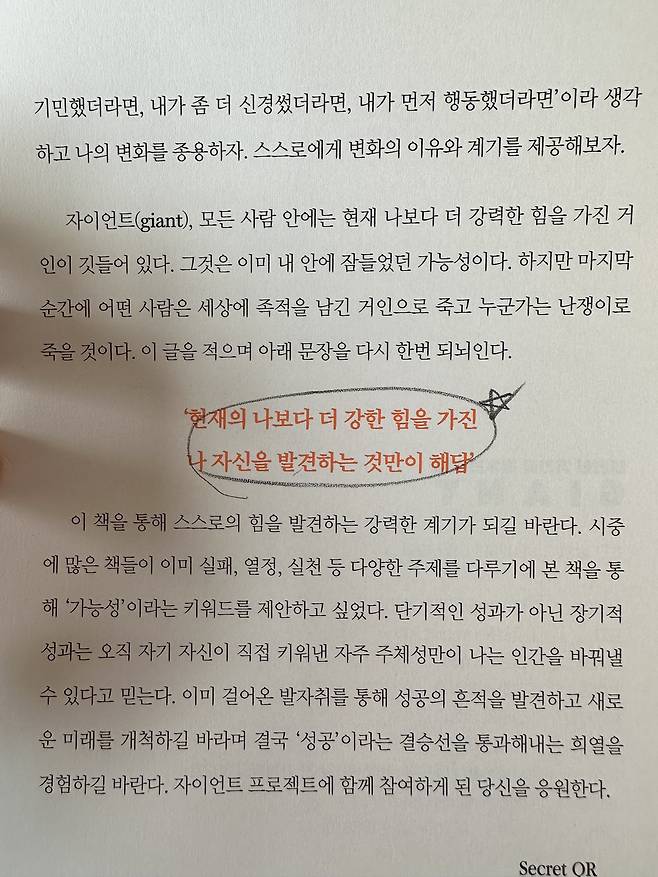 기민했더라면, 내가 좀 더 신경썼더라면, 내가 먼저 행동했더라면’이라 생각
하고 나의 변화를 종용하자. 스스로에게 변화의 이유와 계기를 제공해보자.
자이언트(giant), 모든 사람 안에는 현재 나보다 더 강력한 힘을 가진 거
인이 깃들어 있다. 그것은 이미 내 안에 잠들었던 가능성이다. 하지만 마지막
순간에 어떤 사람은 세상에 족적을 남긴 거인으로 죽고 누군가는 난쟁이로
죽을 것이다. 이 글을 적으며 아래 문장을 다시 한번 되뇌인다.
‘현재의 나보다 더 강한 힘을 가진
나 자신을 발견하는 것만이 해답’
이 책을 통해 스스로의 힘을 발견하는 강력한 계기가 되길 바란다. 시중
에 많은 책들이 이미 실패, 열정, 실천 등 다양한 주제를 다루기에 본 책을 통
해 ‘가능성’이라는 키워드를 제안하고 싶었다. 단기적인 성과가 아닌 장기적
성과는 오직 자기 자신이 직접 키워낸 자주 주체성만이 나는 인간을 바꿔낼
수 있다고 믿는다. 이미 걸어온 발자취를 통해 성공의 흔적을 발견하고 새로
운 미래를 개척하길 바라며 결국 ‘성공’이라는 결승선을 통과해내는 희열을
경험하길 바란다. 자이언트 프로젝트에 함께 참여하게 된 당신을 응원한다.
Secret QR